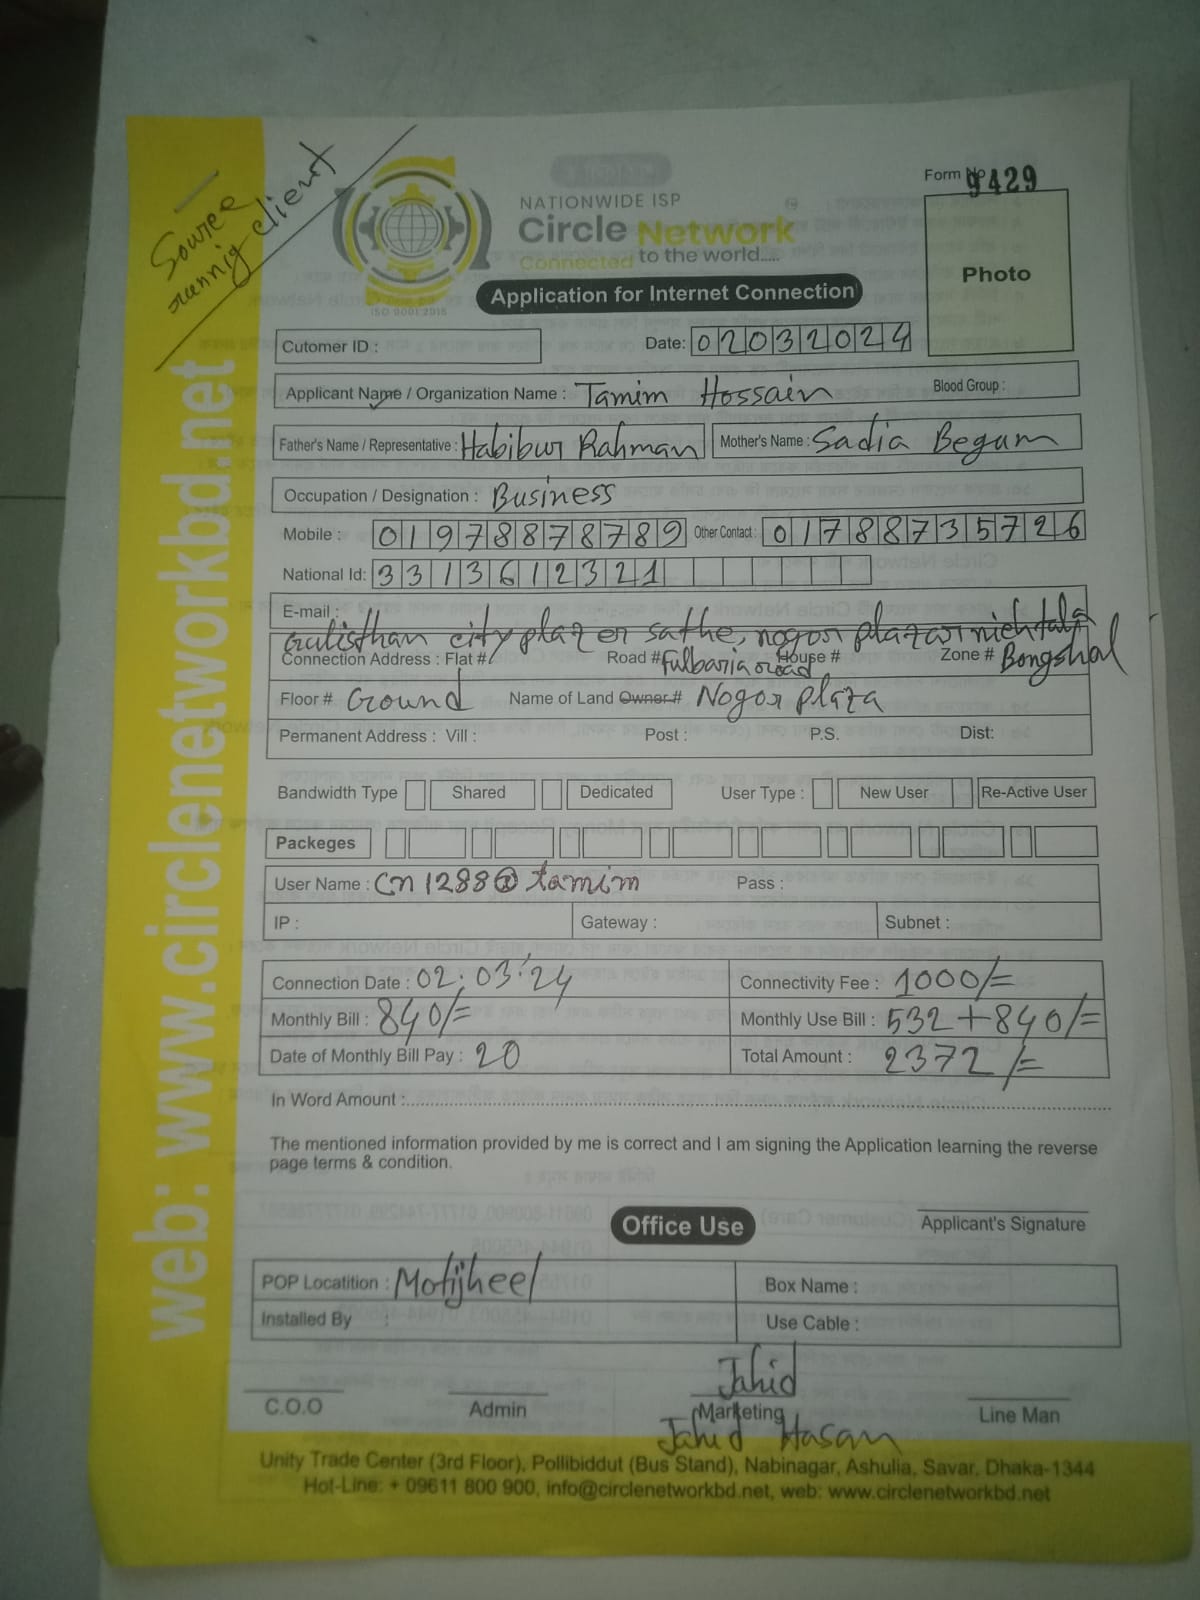 Source
runnig client
Form No
9429
NATIONWIDE ISP
Circle Network
Connected to the world.....
ISO 9001:2015
Photo
Application for Internet Connection
Cutomer ID :
Date: 02032024
Applicant Name / Organization Name : Tamim Hossain Blood Group :
Father's Name / Representative : Habibur Rahman Mother's Name : Sadia Begum
Occupation / Designation : Business
Mobile : 01978878789 Other Contact : 01788735726
National Id: 3313612321
E-mail :
Gulisthan city plaz er sathe, nogor plazar nichtala
Connection Address : Flat # Road # Fulbaria road House # Zone # Bongshal
Floor # Ground Name of Land Owner # Nogor plaza
Permanent Address : Vill : Post : P.S. Dist:
Bandwidth Type Shared Dedicated User Type : New User Re-Active User
Packeges
User Name : cn1288@tamim Pass :
IP : Gateway : Subnet :
Connection Date : 02.03.24 Connectivity Fee : 1000/=
Monthly Bill : 840/= Monthly Use Bill : 532+840/=
Date of Monthly Bill Pay : 20 Total Amount : 2372/=
In Word Amount :
The mentioned information provided by me is correct and I am signing the Application learning the reverse
page terms & condition.
Applicant's Signature
Office Use
POP Locatition : Motijheel Box Name :
Installed By : Use Cable :
Jahid
C.O.O Admin Marketing Line Man
Jahid Hasan
Unity Trade Center (3rd Floor), Pollibiddut (Bus Stand), Nabinagar, Ashulia, Savar, Dhaka-1344
Hot-Line: + 09611 800 900, info@circlenetworkbd.net, web: www.circlenetworkbd.net
web: www.circlenetworkbd.net